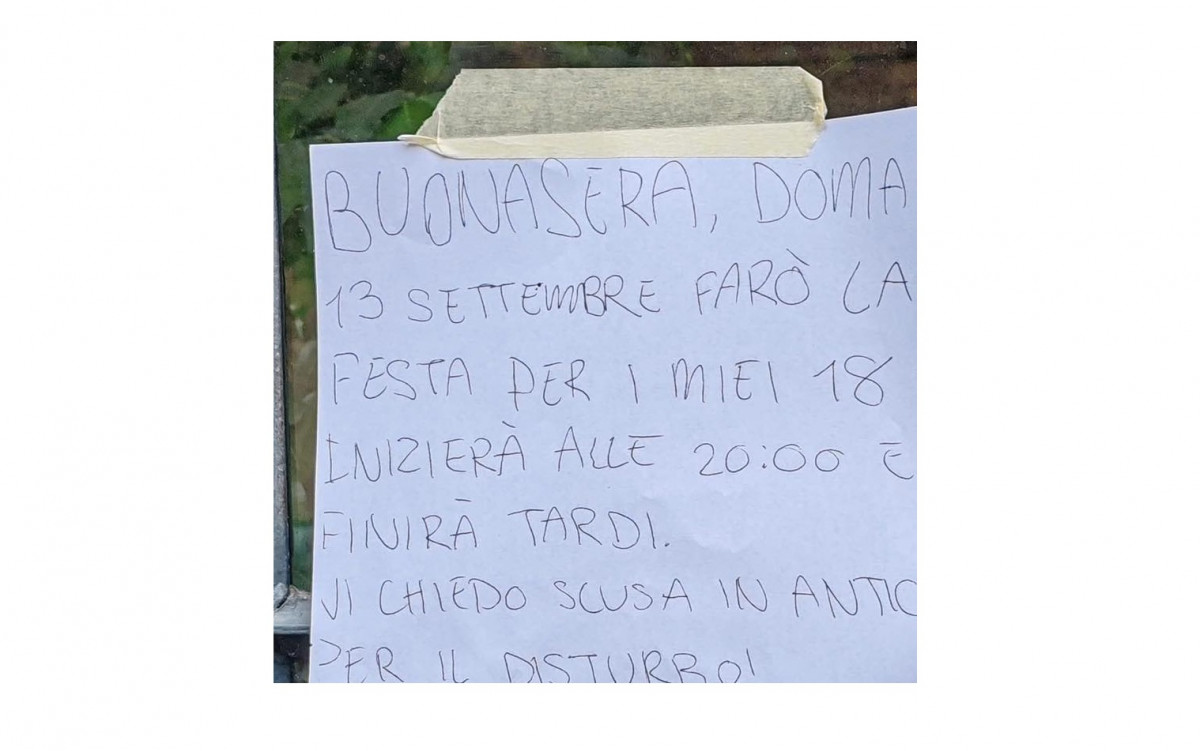 BUONASERA, DOMA
13 SETTEMBRE FARÒ LA
FESTA PER I MIEI 18
INIZIERÀ ALLE 20:00 E
FINIRÀ TARDI.
VI CHIEDO SCUSA IN ANTIC
PER IL DISTURBO!